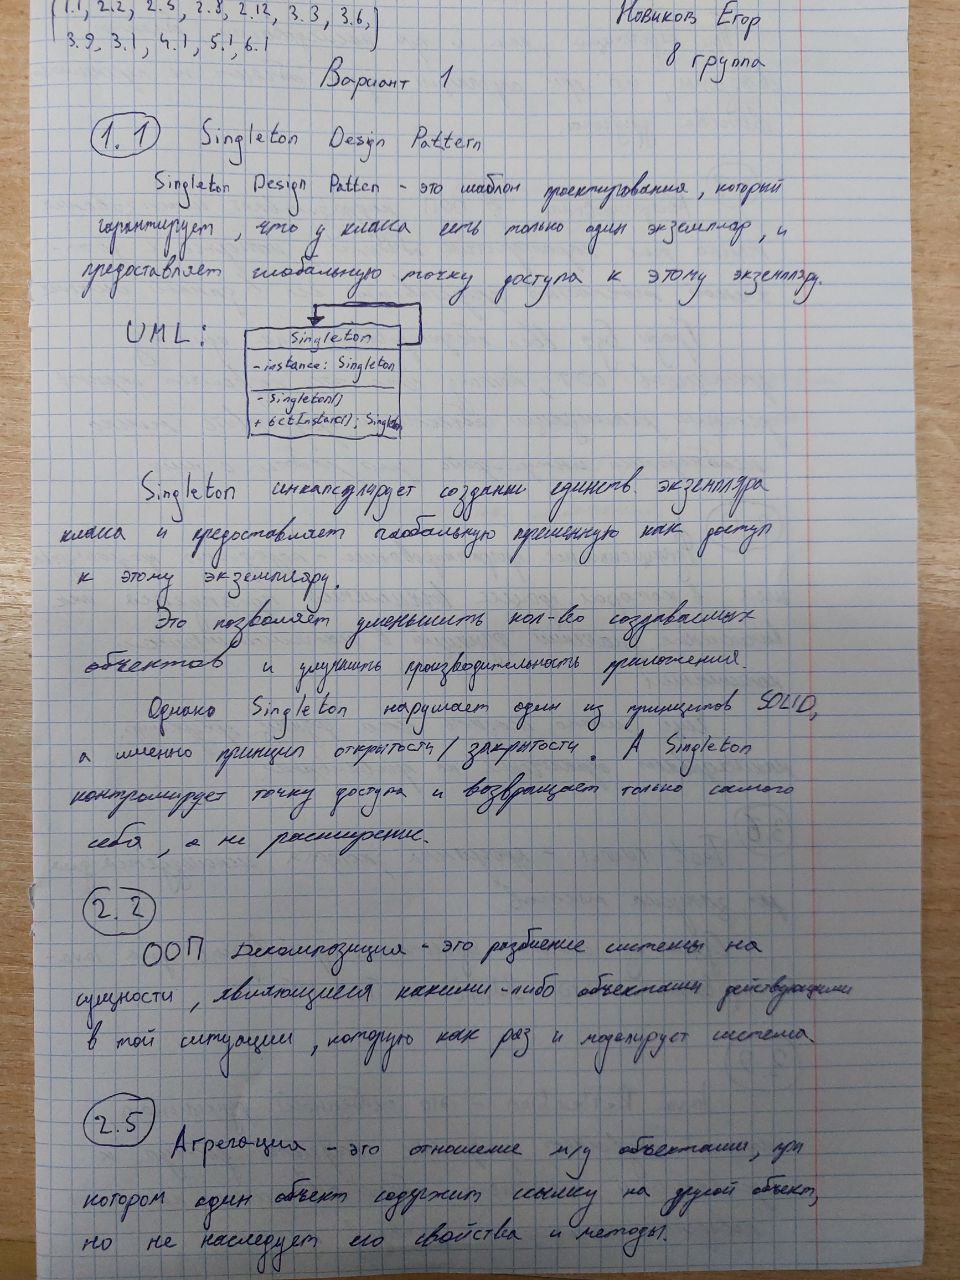 1.1, 2.2, 2.5, 2.8, 2.12, 3.3, 3.6,
3.9, 3.1, 4.1, 5.1, 6.1
Новиков Егор
8 группа
Вариант 1
1.1 Singleton Design Pattern
Singleton Design Patten - это шаблон проектирования, который
гарантирует, что у класса есть только один экземпляр, и
предоставляет глобальную точку доступа к этому экземпляру.
UML:
Singleton
- instance: Singleton
- Singleton()
+ GetInstance(): Singleton
Singleton инкапсулирует создание единств. экземпляра
класса и предоставляет глобальную переменную как доступ
к этому экземпляру.
Это позволяет уменьшить кол-во создаваемых
объектов и улучшить производительность приложения.
Однако Singleton нарушает один из принципов SOLID,
а именно принцип открытости/закрытости. А Singleton
контролирует точку доступа и возвращает только самого
себя, а не расширение.
2.2
ООП Декомпозиция - это разбиение системы на
сущности, являющиеся какими-либо объектами действующими
в той ситуации, которую как раз и моделирует система
2.5
Агрегация - это отношение м/д объектами, при
котором один объект содержит ссылку на другой объект,
но не наследует его свойства и методы.